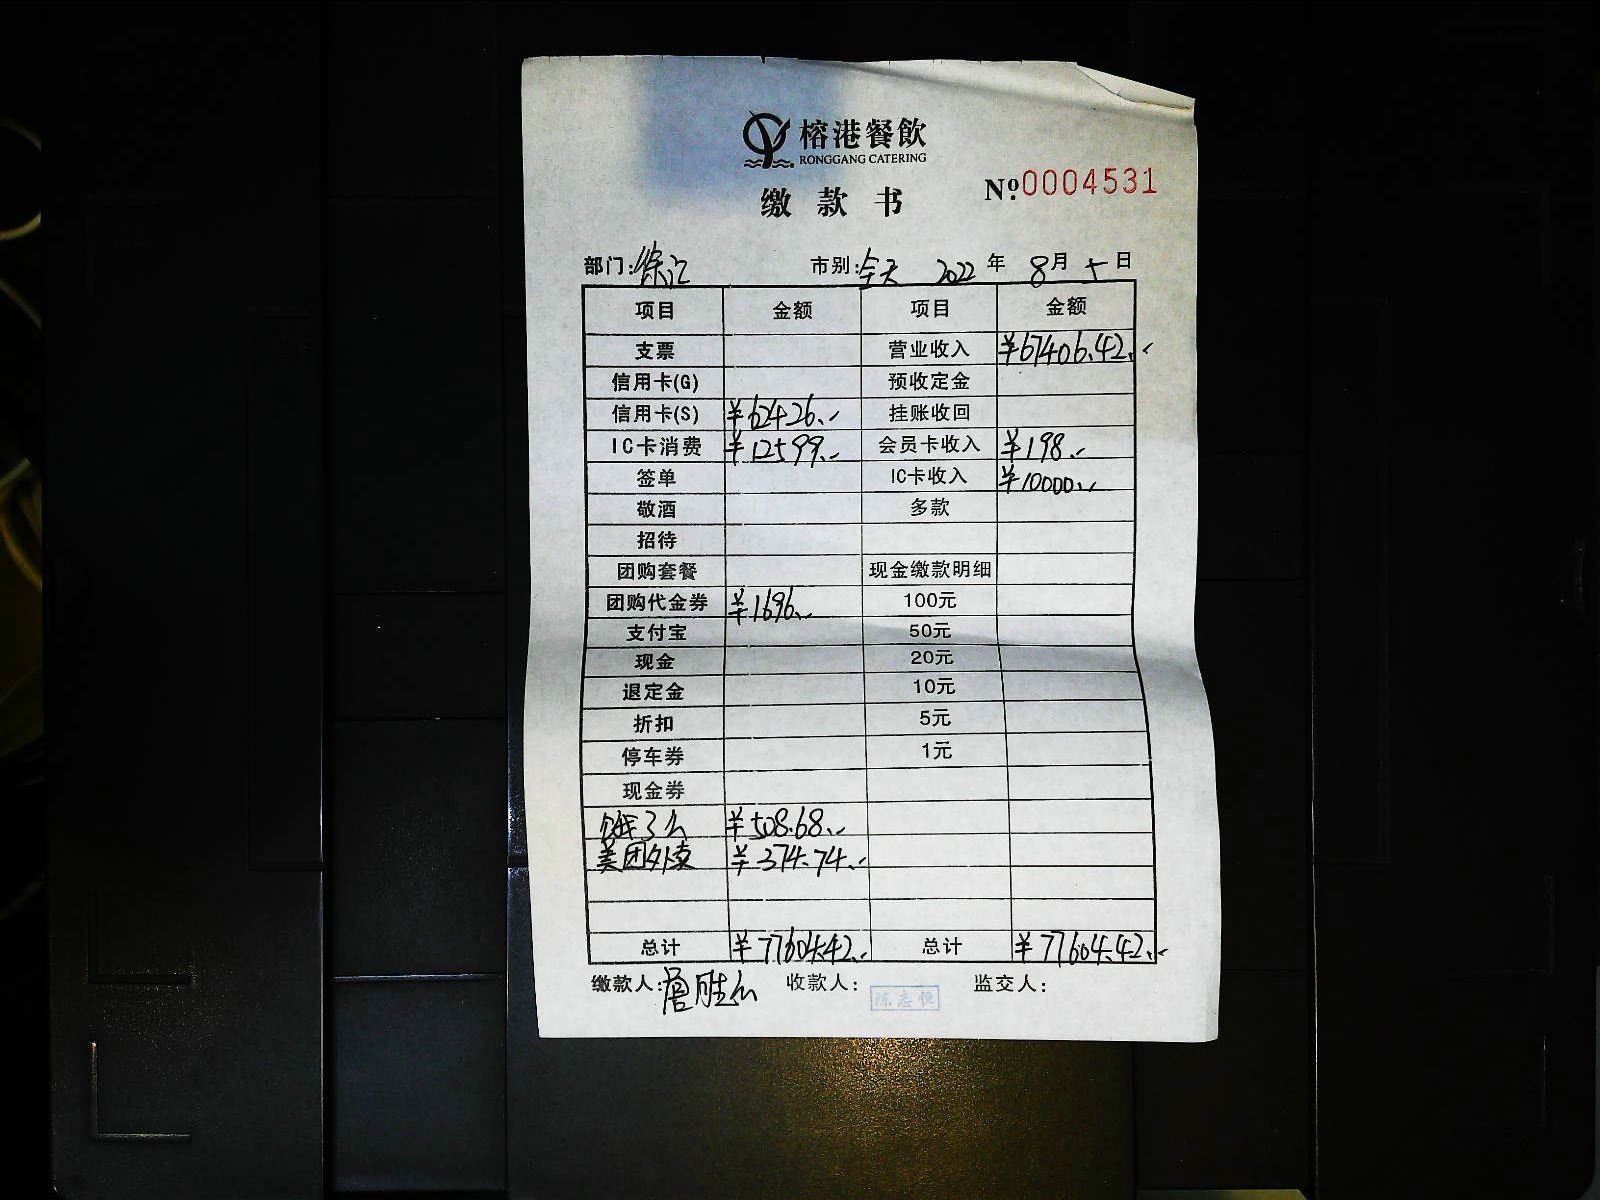 榕港餐飲
RONGGANG CATERING
缴款书
№.0004531
部门:徐汇 市别:全天 2022年8月5日
项目 金额 项目 金额
支票 营业收入 ¥67406.42
信用卡(G) 预收定金
信用卡(S) ¥62426. 挂账收回
IC卡消费 ¥12599. 会员卡收入 ¥198.
签单 IC卡收入 ¥10000.
敬酒 多款
招待
团购套餐 现金缴款明细
团购代金券 ¥1696. 100元
支付宝 50元
现金 20元
退定金 10元
折扣 5元
停车券 1元
现金券
饿了么 ¥508.68
美团外卖 ¥374.74
总计 ¥77604.42 总计 ¥77604.42
缴款人: 收款人: 陈志恒 监交人: